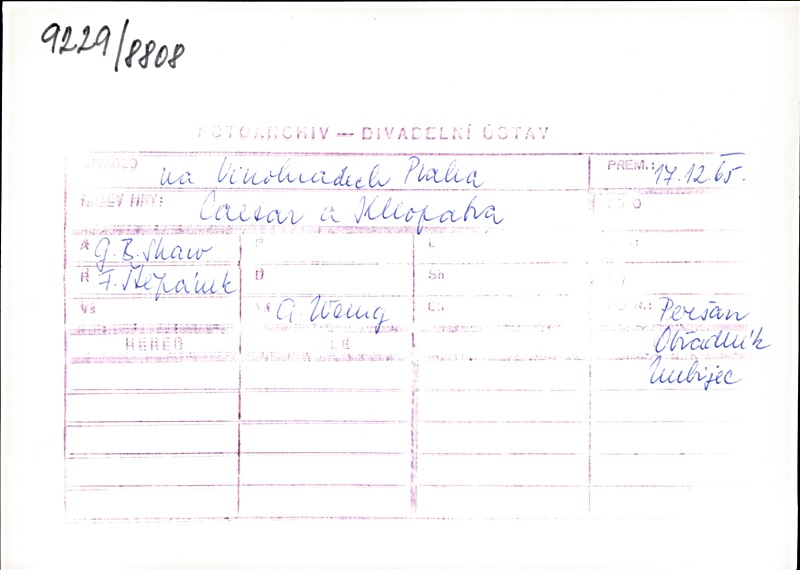 9229/8808
FOTOARCHIV — DIVADELNÍ ÚSTAV
DIVADLO na Vinohradech Praha PREM.: 17.12.65.
NÁZEV HRY: Caesar a Kleopatra
A G.B.Shaw P L
Ř F.Štěpánek D Sh
Vš A. Wenig Ch Peršan
HEREC Obřadník
Nubijec